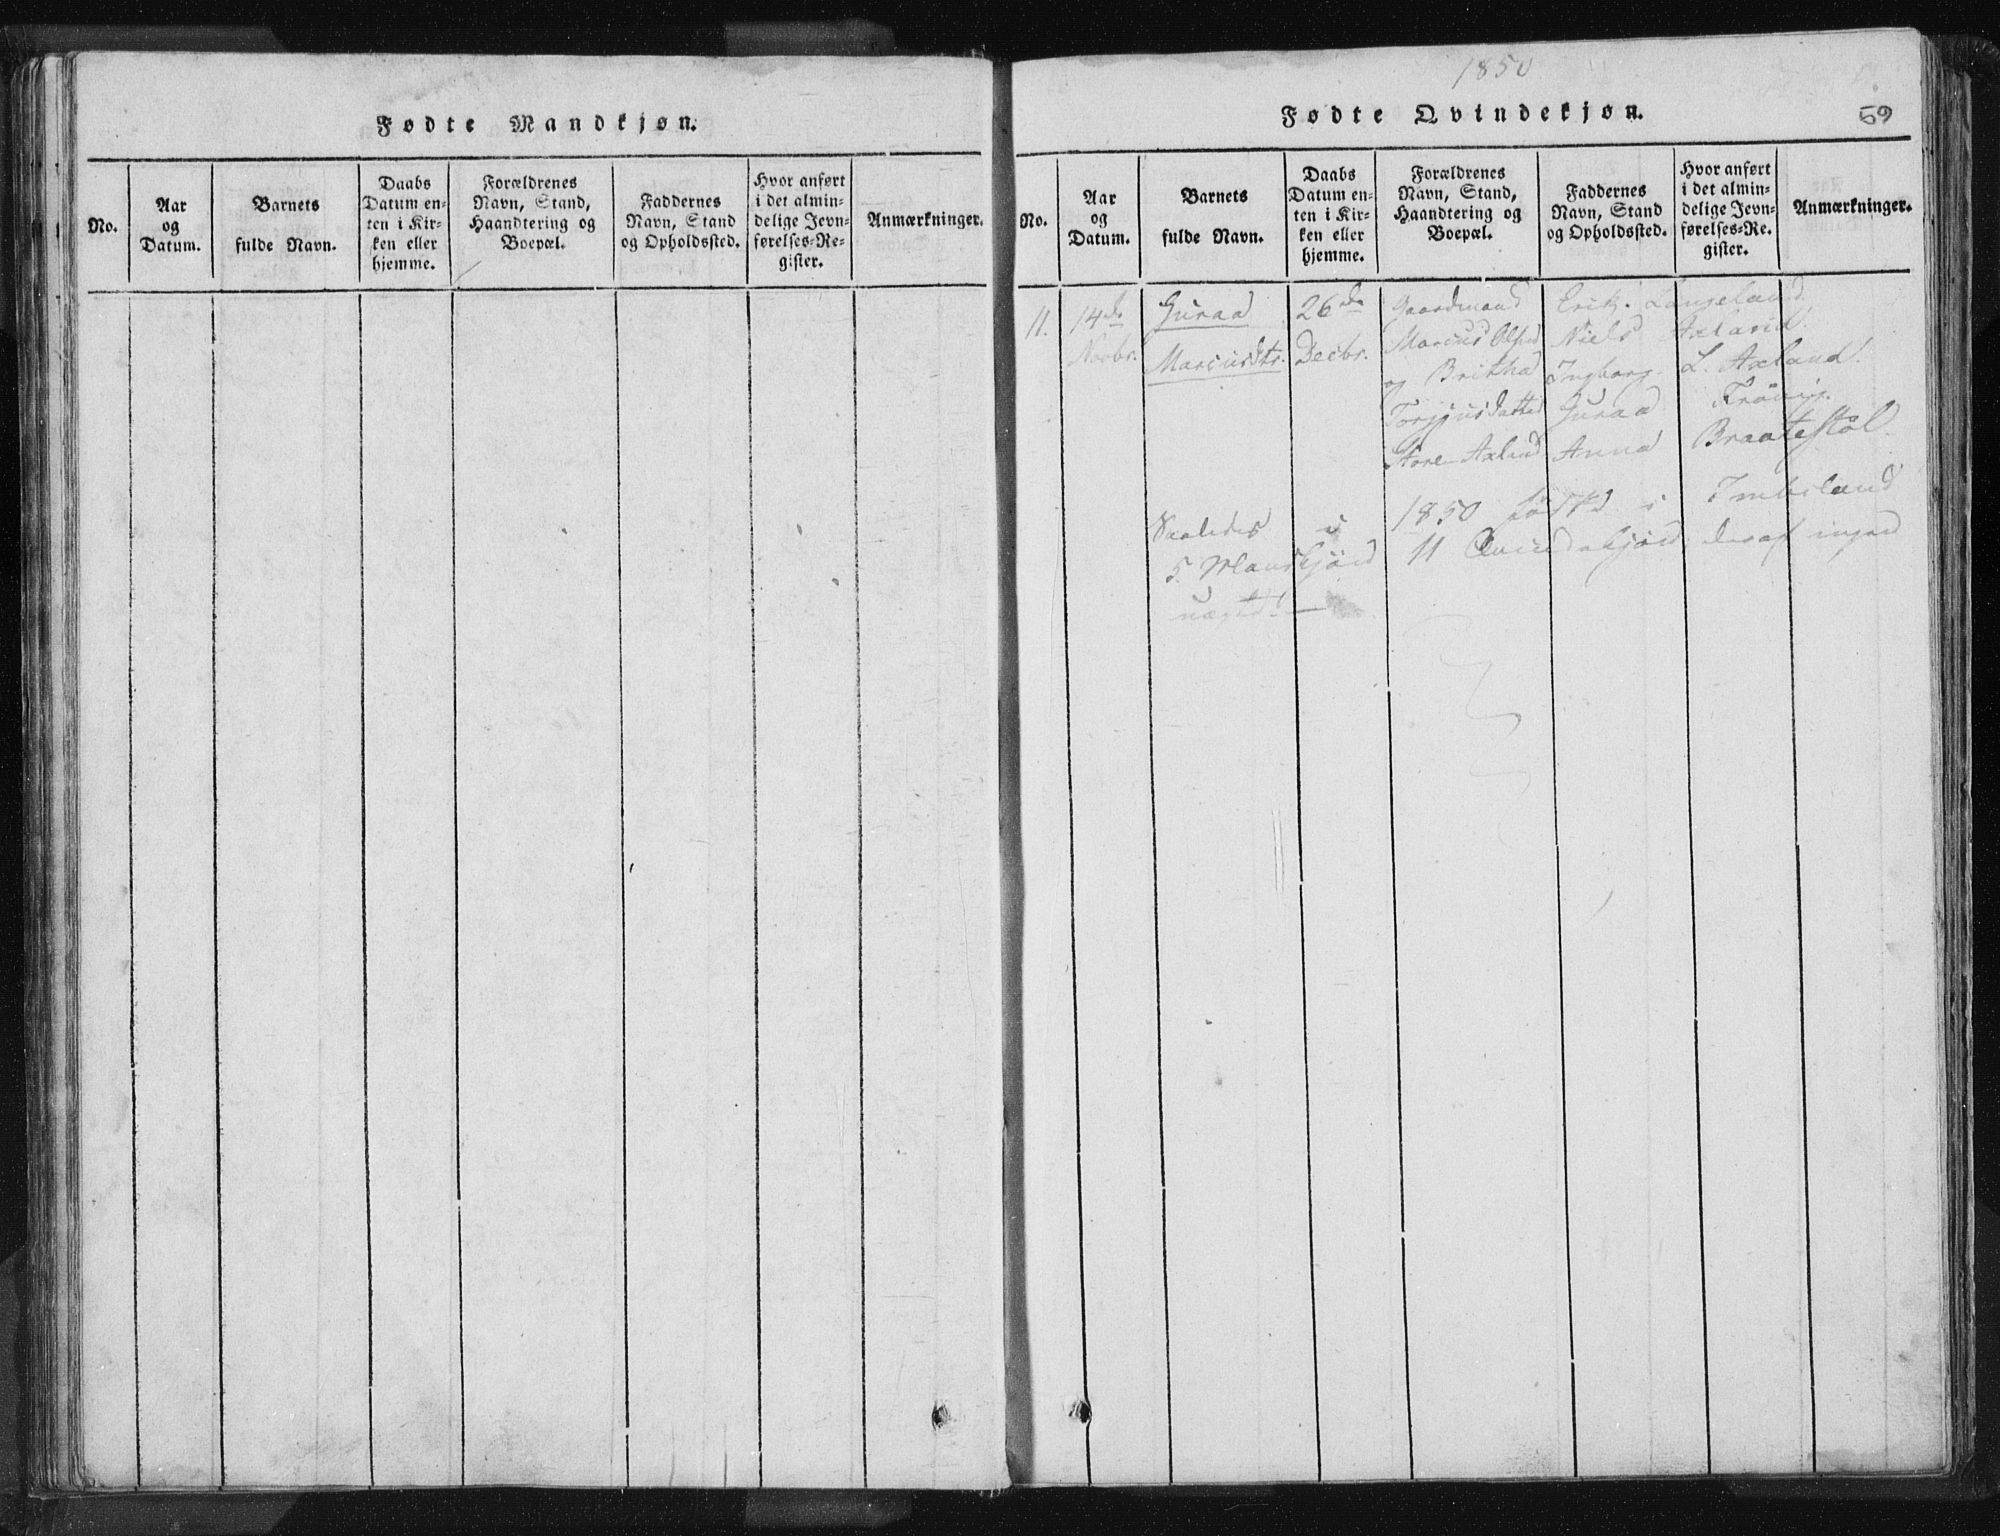 Fødte Mandkjøn.
No.
Aar
og
Datum.
Barnets
fulde Navn.
Daabs
Datum en-
ten i Kir-
ken eller
hjemme.
Forældrenes
Navn, Stand,
Haandtering og
Boepæl.
Faddernes
Navn, Stand
og Opholdssted.
Hvor anført
i det almin-
delige Jevn-
førelses-Re-
gister.
Anmærkninger.
1850
Fødte Qvindekjøn.
59
No.
Aar
og
Datum.
Barnets
fulde Navn.
Daabs
Datum en-
ten i Kir-
ken eller
hjemme.
Forældrenes
Navn, Stand,
Haandtering og
Boepæl.
Faddernes
Navn, Stand
og Opholdssted.
Hvor anført
i det almin-
delige Jevn-
førelses-Re-
gister.
Anmærkninger.
11.
14de
Novbr.
Guraa
Marcusdtr.
26de
Decbr.
Gaardmand
Marcus Olsen
og Britha
Torgjusdatter
Store Axland
Erik Langeland
Niels Axland
Ingborg L. Axland
Guraa
Anna Braatestöl
Saaledes i 1850 födte i Imbsland
5 Mandkjön 11 Qvindekjön deraf ingen
uægte